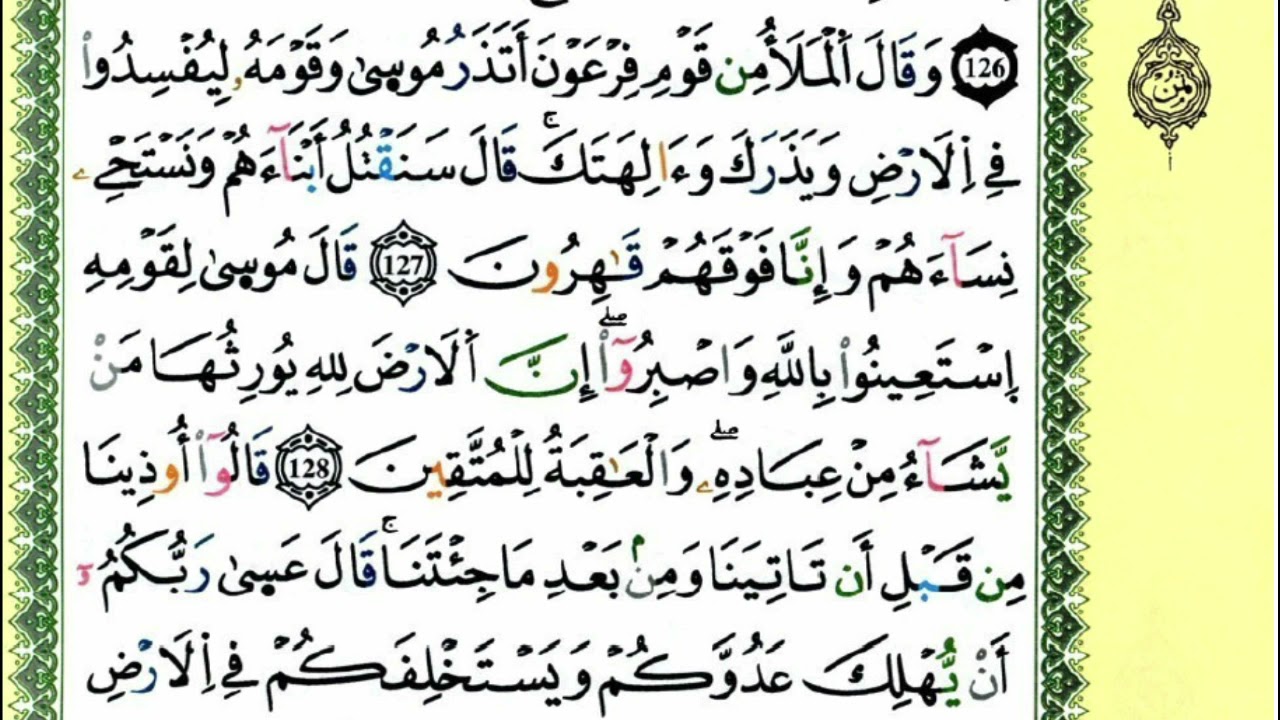 126 وَقَالَ اَ۬لْمَلَأُ مِن قَوْمِ فِرْعَوْنَ أَتَذَرُ مُوس۪ىٰ وَقَوْمَهُۥ لِيُفْسِدُواْ
فِے اِ۬لَارْضِ وَيَذَرَكَ وَءَالِهَتَكَۚ قَالَ سَنَقْتُلُ أَبْنَآءَهُمْ وَنَسْتَحْيِے
نِسَآءَهُمْ وَإِنَّا فَوْقَهُمْ قَٰهِرُونَ 127 قَالَ مُوس۪ىٰ لِقَوْمِهِ
اِ۪سْتَعِينُواْ بِاللَّهِ وَاصْبِرُوٓاْۖ إِنَّ اَ۬لَارْضَ لِلهِ يُورِثُهَا مَنْ
يَّشَآءُ مِنْ عِبَادِهِۦۖ وَالْعَٰقِبَةُ لِلْمُتَّقِينَ 128 قَالُوٓاْ أُوذِينَا
مِن قَبْلِ أَن تَاتِيَنَا وَمِنۢ بَعْدِ مَا جِئْتَنَاۚ قَالَ عَس۪ىٰ رَبُّكُمُۥٓ
أَنْ يُّهْلِكَ عَدُوَّكُمْ وَيَسْتَخْلِفَكُمْ فِے اِ۬لَارْضِ
ثُمُنٌ